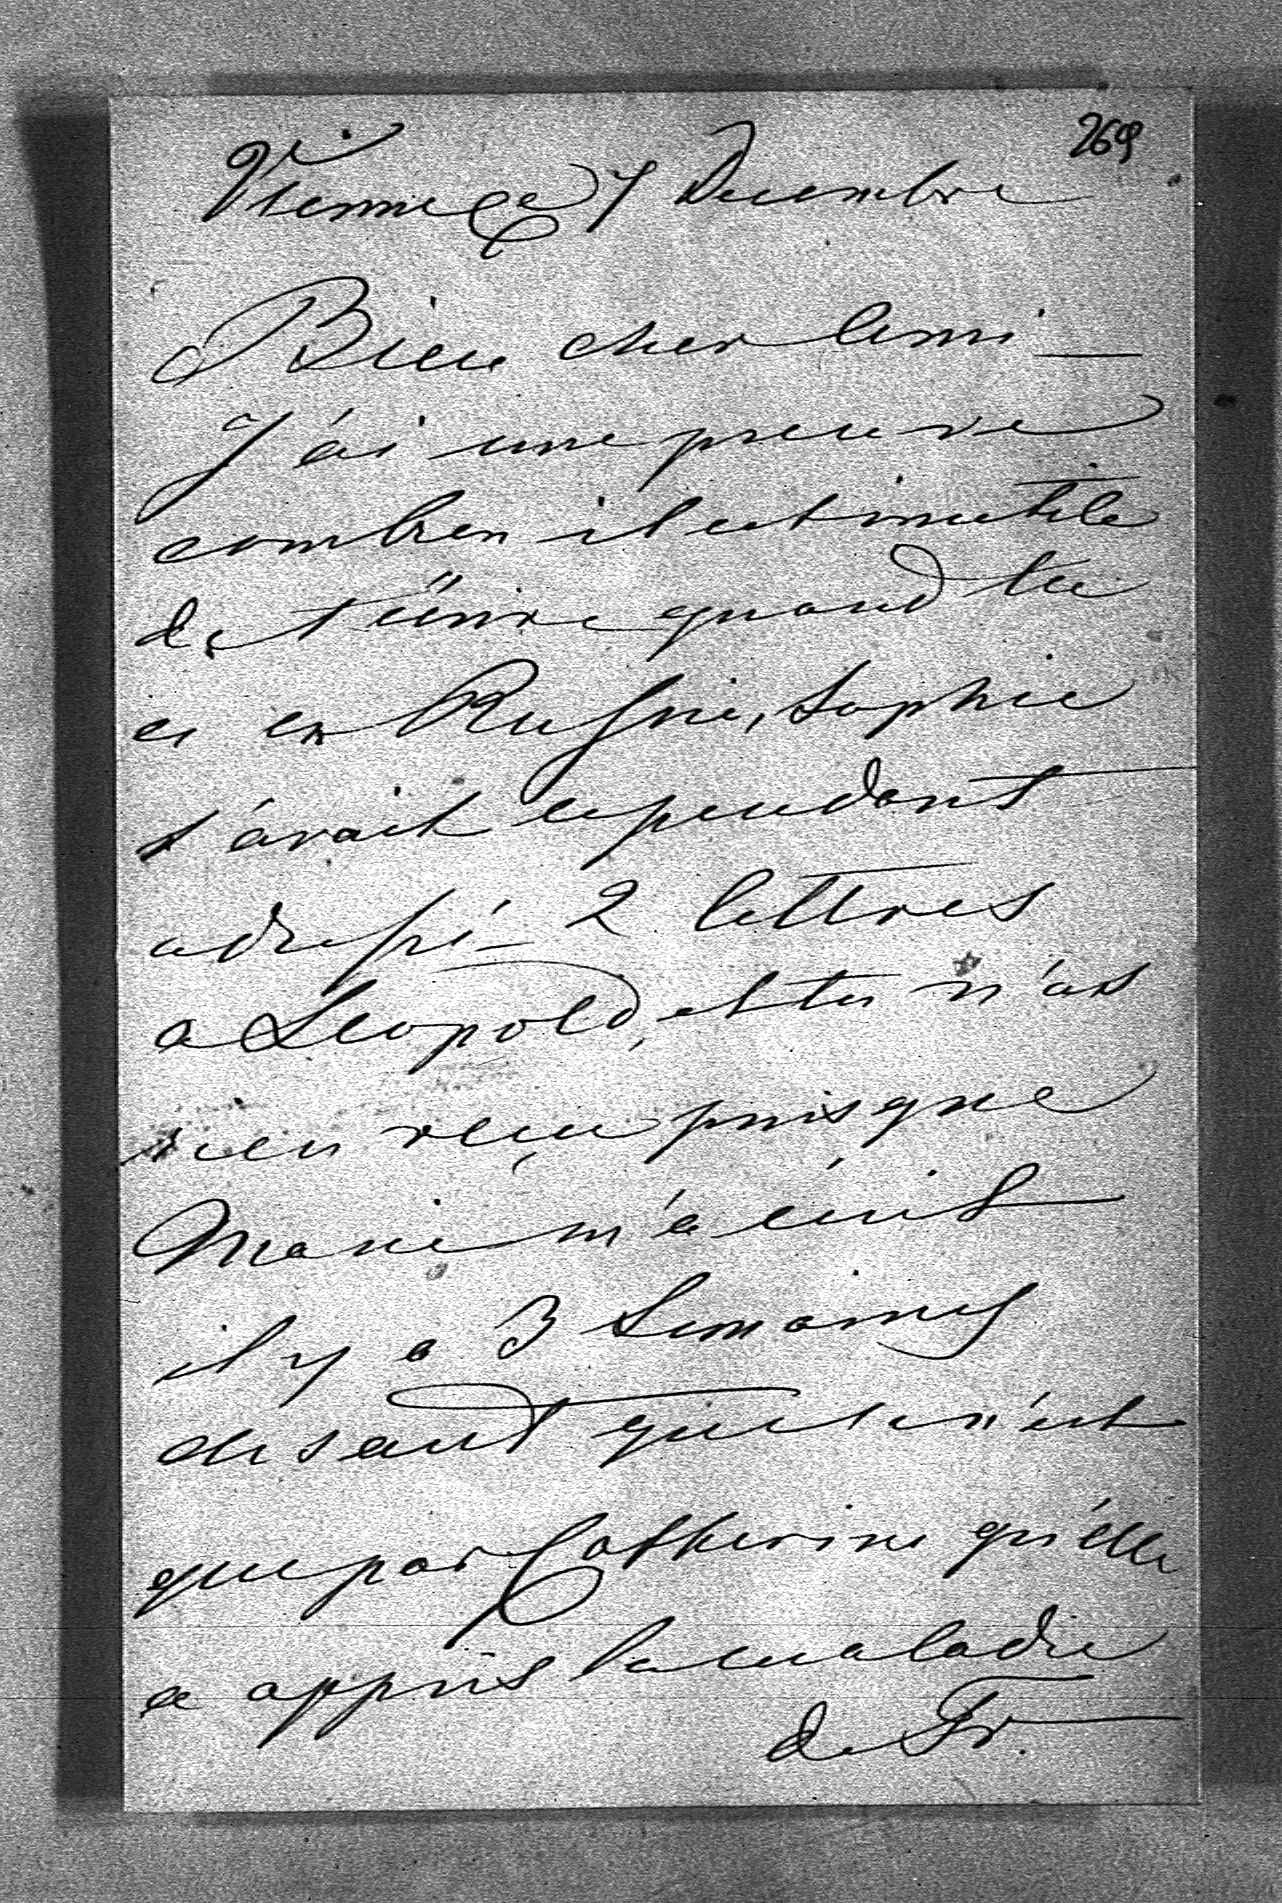 269
Vienne ce 7 Decembre
Bien cher Ami
J'ai une preuve
combien il est inutile
de t'écrire quand tu
es en Russie, Sophie
t'avait cependant
adressé 2 lettres
a Leopold, et tu n'as
rien reçu puisque
Marie m'a écrit
il y a 3 Semaines
disant que ce n'est
que par Catherine qu'elle
a appris la maladie
de Fr.